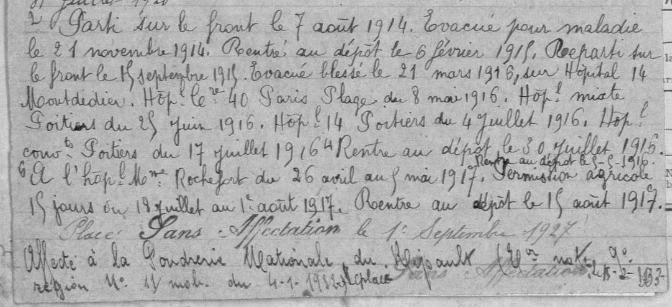 2 Parti sur le front le 7 août 1914. Evacué pour maladie
le 21 novembre 1914. Rentré au dépôt le 6 février 1915. Reparti sur
le front le 15 septembre 1915. Evacué blessé le 21 mars 1916, sur Hôpital 14
Montdidier. Hôp.l 40 Paris Plage du 8 mai 1916. Hôp.l mixte
Poitiers du 25 juin 1916. Hôp.l 14 Poitiers du 4 juillet 1916. Hôp.l
conv.ts Poitiers du 17 juillet 1916 Rentré au dépôt le 30 juillet 1916
Rentré au dépôt le 5-5-1916.
6 A l'hôp.l Rochefort du 26 avril au 5 mai 1917. Permission agricole
15 jours du 18 juillet au 1er août 1917. Rentré au dépôt le 15 août 1917
Placé Sans Affectation le 1er Septembre 1927
Affecté à la Poudrerie Nationale du Ripault
région mob. du 4-1-1932 place Sans Affectation